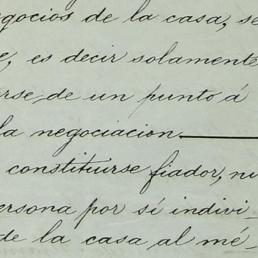 egocios de la casa, se
e, es decir solamente
rse de un punto á
la negociacion.
constituirse fiador, ni
ersona por sí indivi
de la casa al mé-